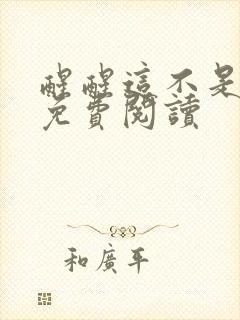 醒醒這不是
免費閱讀
和廣平